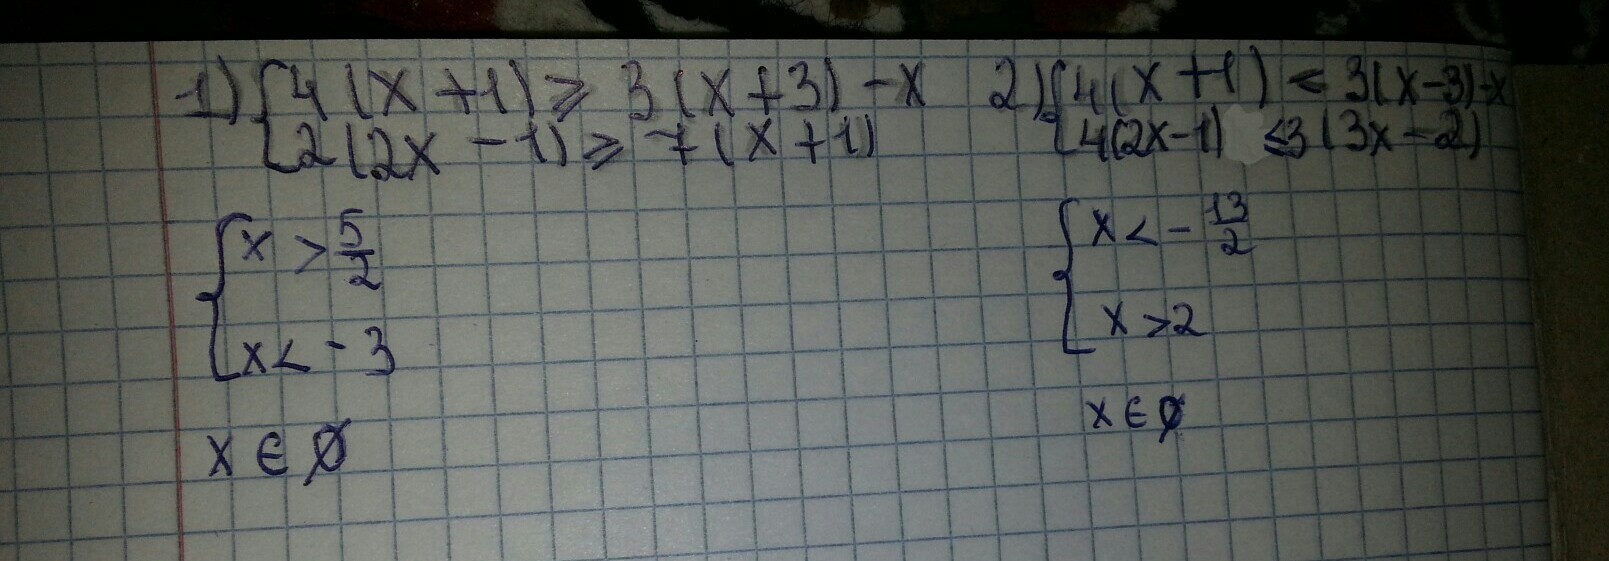 1) { 4(x+1) ⩾ 3(x+3)-x
2(2x-1) ⩾ 7(x+1)
{ x > 5/2
x < -3
x ∈ ∅
2) { 4(x+1) < 3(x-3)-x
4(2x-1) ≤ 3(3x-2)
{ x < - 13/2
x > 2
x ∈ ∅